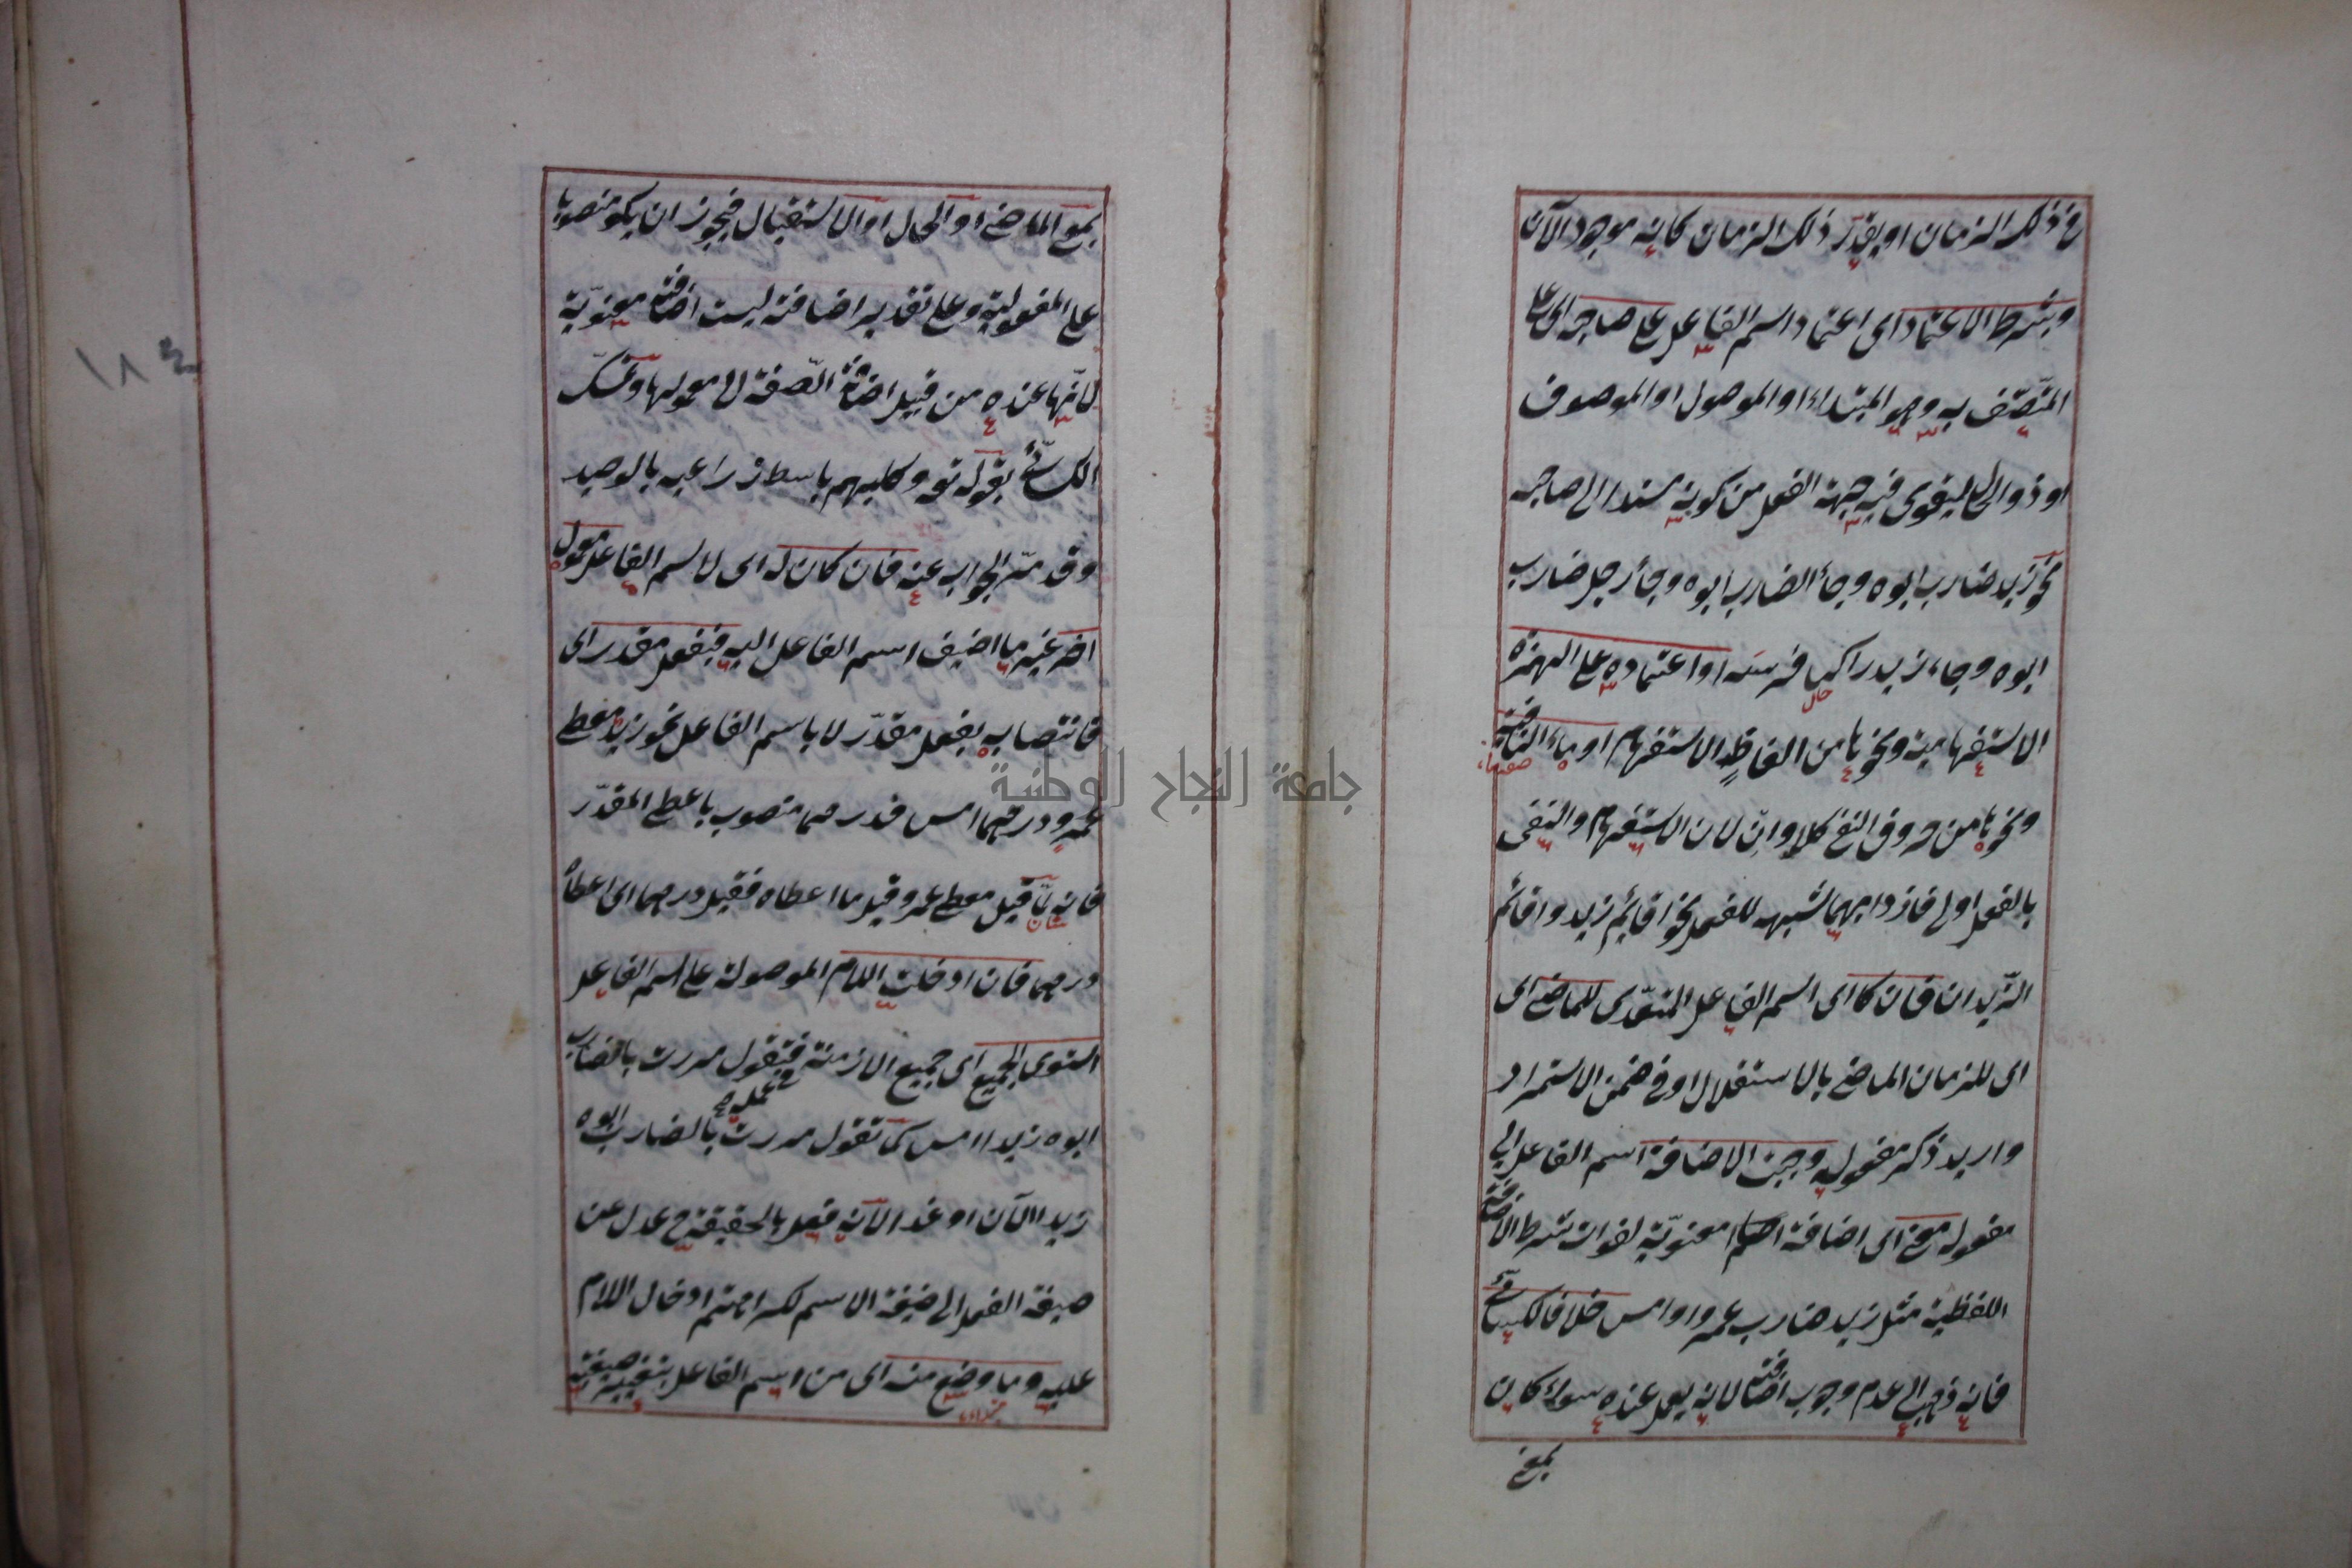 في ذلك الزمان او يقدّر ذلك الزمان كانه موجود الآن
وبشرط الاعتماد اى اعتماد اسم الفاعل على صاحبه اى على
المتّصف به وهو المبتداء او الموصول او الموصوف
او ذو الحال ليقوى فيه جهة الفعل من كونه مسندا الى صاحبه
نحو زيد ضارب ابوه وجأ الضارب ابوه وجأ رجل ضارب
ابوه وجاء زيد راكبا فرسه او اعتماده على الهمزة
حال
الاستفهامية ونحوها من الفاظ الاستفهام او ماء النافية
ونحوها من حروف النفى كلا وانّ لان الاستفهام والنفى
بالفعل اولى فازداد بهما شبهه للفعل نحو اقائم زيد وما قائم
الزيدان فان كا اى اسم الفاعل المتعدّى للماضى اى
اى للزمان الماضى بالاستقلال او فى ضمن الاستمرار
واريد ذكر مفعوله وجبت الاضافة اسم الفاعل الى
مفعوله معنى اى اضافة معنويّة لفوات شرط الاضافة
اللفظية مثل زيد ضارب عمرو امس خلافا للكسائى
فانه ذهب الى عدم وجوب اضافته لانه يعمل عنده سواء كان
بمعنى
بمعنى الماضى او الحال او الاستقبال فيجوز ان يكو منصوبا
على المفعولية وعلى تقدير اضافته ليست اضافته معنويّة
لانّها عنده من قبيل اضافة الصّفة الى معمولها وتمسّك
الكسائى بقوله تع وكلبهم باسط ذراعيه بالوصيد
وقد مرّ الجواب عنه فان كان له اى لاسم الفاعل معمول
اخر غير ما اضيف اسم الفاعل اليه فبفعل مقدر اى
فانتصابه بفعل مقدّر لا باسم الفاعل نحو زيد معطى
عمرو درهما امس فدرهما منصوب باعطى المقدّر
فانه لمّا قيل معطى عمرو قيل ما اعطاه فقيل درهما اى اعطاه
درهما فان ادخلت اللام الموصولة على اسم الفاعل
استوى الجميع اى جميع الازمنة فتقول مررت بالضارب
ابوه زيدا امس كما تقول مررت بالضارب ابوه
زيدا الآن او غدا لانه فعل بالحقيقة ح عدل عن
صيغة الفعل الى صيغة الاسم لكراهتهم ادخال اللام
عليه وما وضع منه اى من اسم الفاعل بتغيير صيغته
١٨٤
جامعة النجاح الوطنية